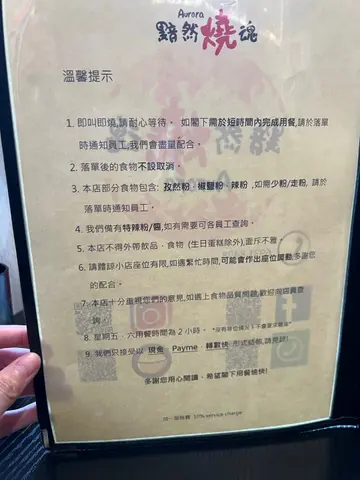 Aurora
黯然燒魂
溫馨提示
1. 即叫即燒,請耐心等待。 如閣下需於短時間內完成用餐,請於落單
時通知員工,我們會盡量配合。
2. 落單後的食物不設取消。
3. 本店部分食物包含: 孜然粉、椒鹽粉、辣粉, 如需少粉/走粉, 請於
落單時通知員工。
4. 我們備有特辣粉/醬,如有需要可各員工查詢。
5. 本店不得外帶飲品、食物 (生日蛋糕除外),面斥不雅
6. 請體諒小店座位有限,如遇繁忙時間,可能會作出座位調動,多謝您
的配合。
7. 本店十分重視您們的意見,如遇上食物品質問題,歡迎向店員查
詢。
8. 星期五、六用餐時間為 2 小時。
9. 我們只接受以 現金、Payme、轉數快 形式結帳,請見諒!
多謝您用心閱讀、希望閣下用餐愉快!
設一服務費 10% service charge